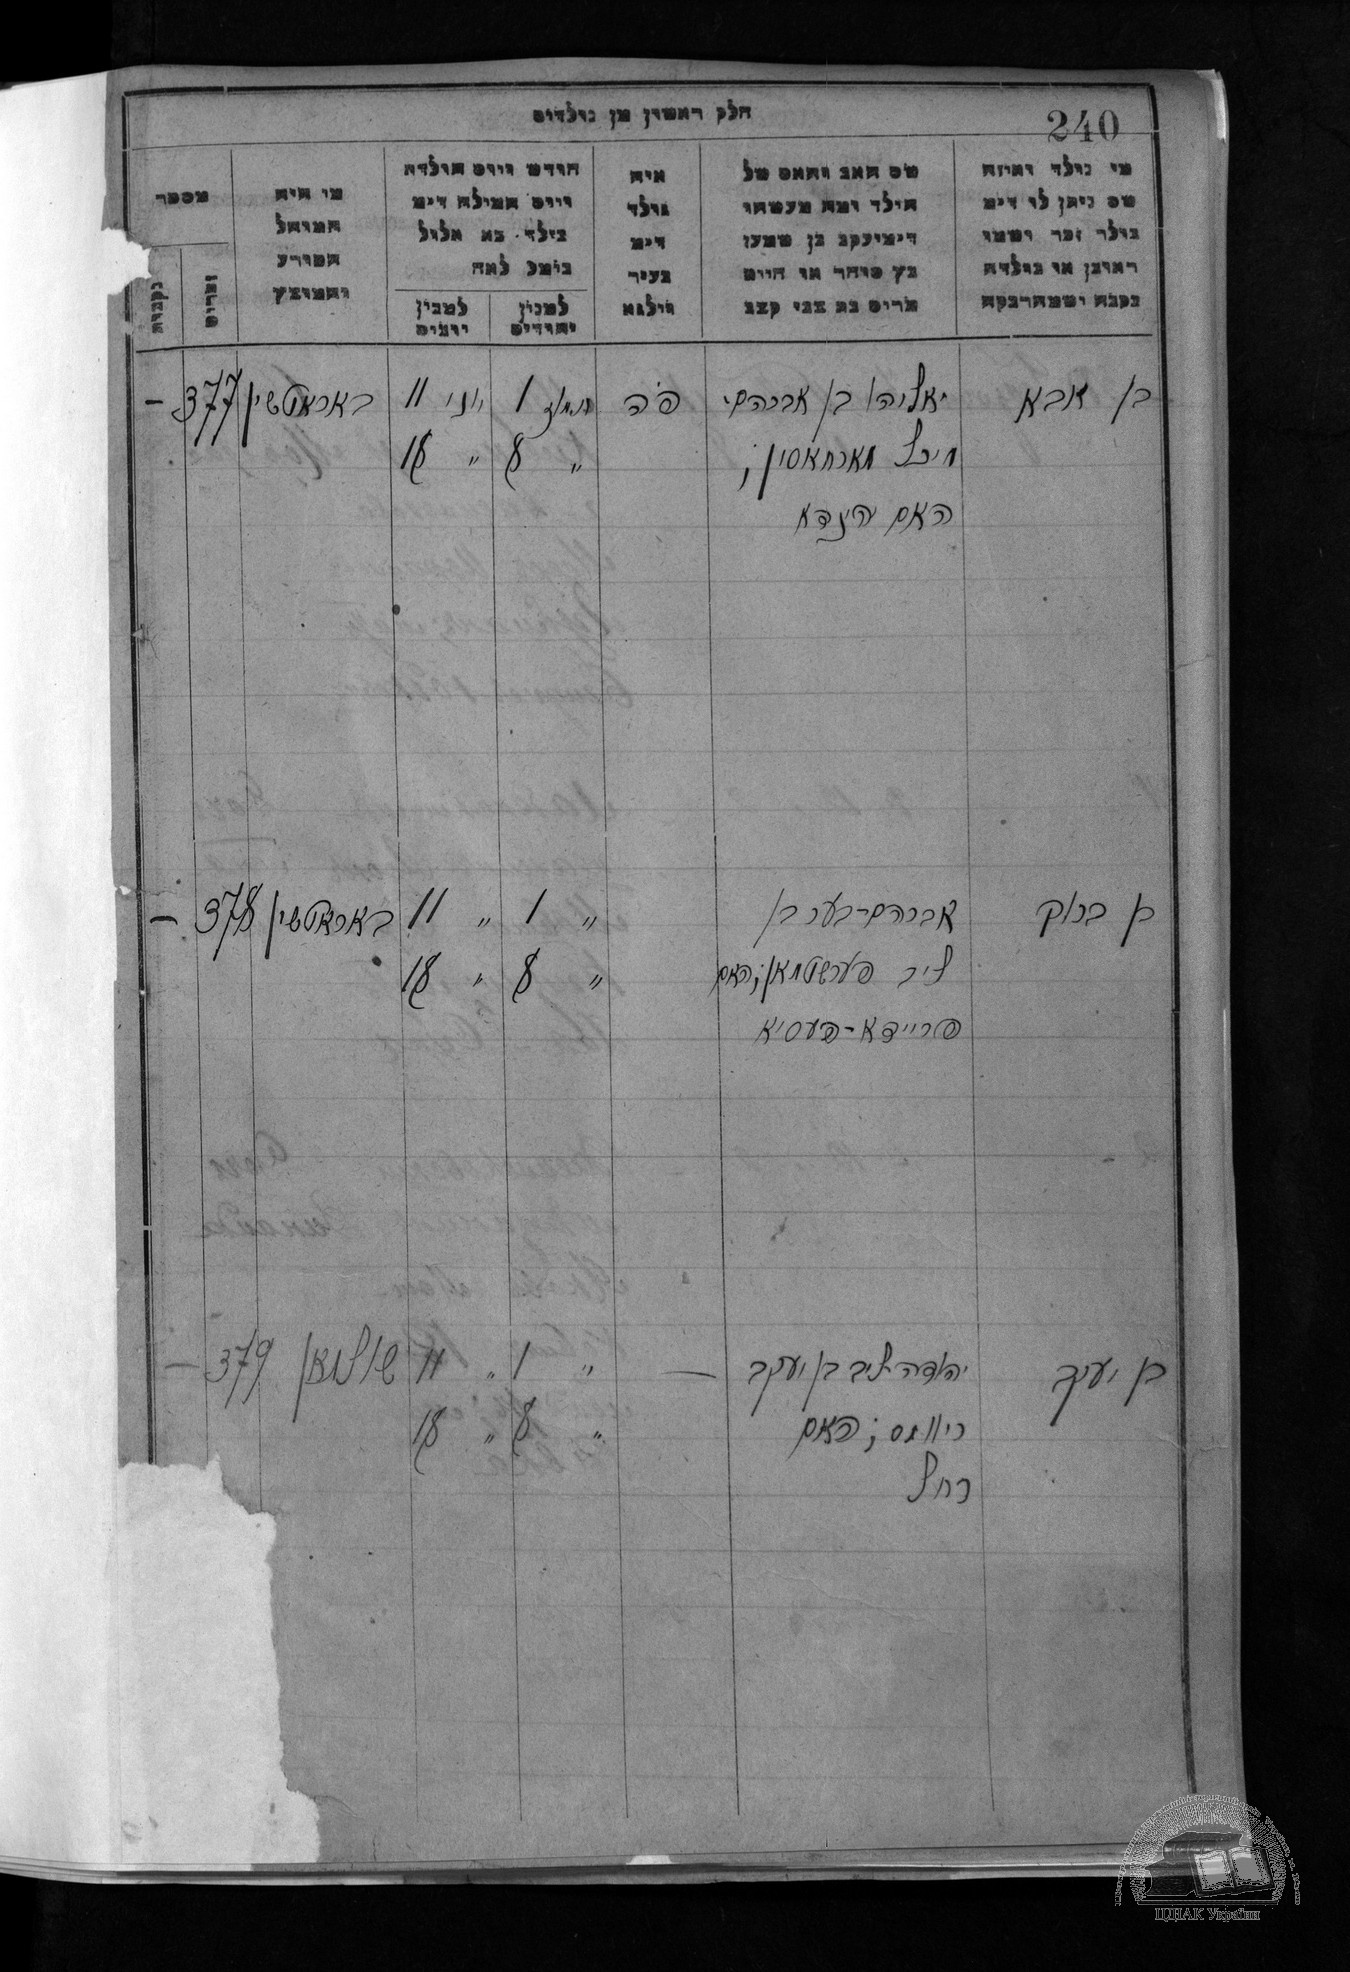 240
חלק ראשון מן נולדים
מי נולד ואיזה
שם ניתן לו דימ
בולד זכר ושמו
ראובן או בולדה
נקבה ושמה רבקה
שם האב והאם של
הילד ומה מעשהו
דימ יעקב בן שמעון
כץ סוחר או חיים
מרים בת צבי קצב
איה
נולד
דימ
בעיר
ווילנא
חודש ויום הולדת
ויום המילה דימ
בילד בא אלול
למנין
יהודים
למנין
יוונים
מי היה
המוהל
הפורע
והמוצץ
מספר
זכרים
נקבות
בן אבא
יאליהו בן אברהם-
מיכל
האם הינדא
פה
תמוז 1
" 8
יוני 11
" 18
באראטשין
377
—
בן ברוך
אברהם-בער בן
ליב פערשטמאן; האם
פריידא-פעסיא
" 1
" 8
" 11
" 18
באראטשין
378
—
בן יעקב
יהודה-ליב בן יעקב
האם
רחל
—
" 1
" 8
" 11
" 18
שולמאן
379
—
ЦДІАК України